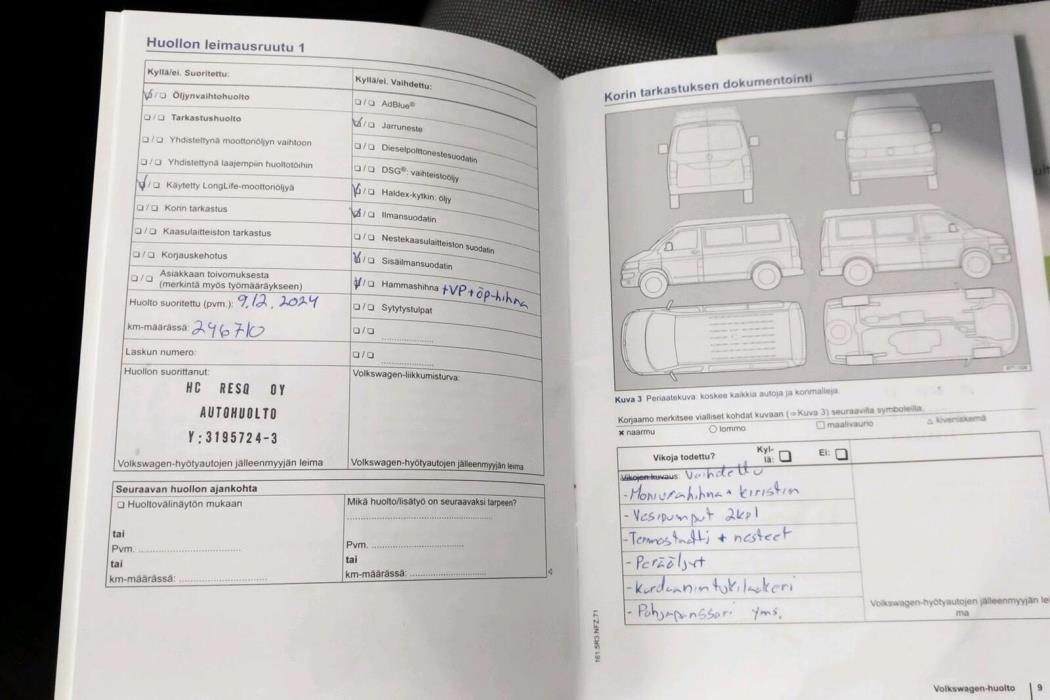 Huollon leimausruutu 1
Kyllä/ei. Suoritettu:
Öljynvaihtohuolto
Tarkastushuolto
Yhdistettynä moottoriöljyn vaihtoon
Yhdistettynä laajempiin huoltotöihin
Käytetty LongLife-moottoriöljyä
Korin tarkastus
Kaasulaitteiston tarkastus
Korjauskehotus
Asiakkaan toivomuksesta
(merkintä myös työmääräykseen)
Huolto suoritettu (pvm.): 9.12.2024
km-määrässä: 296710
Laskun numero:
Huollon suorittanut:
HC RESQ OY
AUTOHUOLTO
Y:3195724-3
Volkswagen-hyötyautojen jälleenmyyjän leima
Kyllä/ei. Vaihdettu:
AdBlue®
Jarruneste
Dieselpolttonestesuodatin
DSG®: vaihteistoöljy
Haldex-kytkin: öljy
Ilmansuodatin
Nestekaasulaitteiston suodatin
Sisäilmansuodatin
Hammashihna +VP+öp-hihna
Sytytystulpat
Volkswagen-liikkumisturva:
Volkswagen-hyötyautojen jälleenmyyjän leima
Seuraavan huollon ajankohta
Huoltovälinäytön mukaan
tai
Pvm.
tai
km-määrässä:
Mikä huolto/lisätyö on seuraavaksi tarpeen?
Pvm.
tai
km-määrässä:
Korin tarkastuksen dokumentointi
Kuva 3 Periaatekuva: koskee kaikkia autoja ja korimalleja.
Korjaamo merkitsee vialliset kohdat kuvaan (⇒Kuva 3) seuraavilla symboleilla:
× naarmu
○ lommo
□ maalivaurio
△ kiveniskemä
Vikoja todettu?
Kyl-
lä:
Ei:
Vikojen kuvaus: Vaihdettu
- Moniurahihna + kiristin
- Vesipumput 2kpl
- Termostaatti + nesteet
- Peräöljyt
- Kardaanin tukilaakeri
- Pohjapanssari yms.
Volkswagen-hyötyautojen jälleenmyyjän lei
ma
161.5R3.NFZ.71
Volkswagen-huolto
9